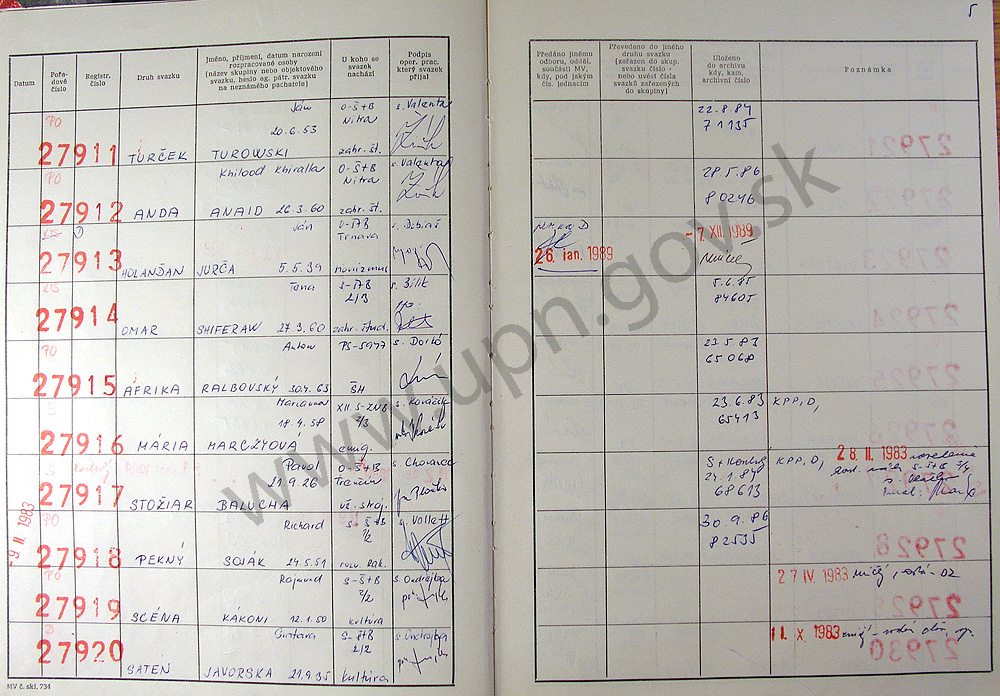 5
Datum
Pořadové číslo
Registr. číslo
Druh svazku
Jméno, příjmení, datum narození rozpracované osoby (název skupiny nebo objektového svazku, heslo ag. pátr. svazku na neznámého pachatele)
U koho se svazek nachází
Podpis oper. prac. který svazek přijal
Předáno jinému odboru, odděl. součásti MV, kdy, pod jakým čís. jednacím
Převedeno do jiného druhu svazku (zařazen do skup. svazku číslo - nebo uvést čísla svazků zařazených do skupiny)
Uloženo do archivu kdy, kam, archivní číslo
Poznámka
PO Ján O-Š+B s. Valenta 22.8.84
20.6.53 Nitra 71135
27911 TURČEK TUROWSKI zahr. št.
PO Khilood Khiralla O-Š+B s. Valenta 28.5.86
Nitra 80246
27912 ANDA ANAID 26.3.60 zahr. št.
KTS Ján Trnava s. Dobiáš - 7 XII. 1989
27913 HOLANĎAN JURČA 5.5.39 26. Jan. 1989
KTS S-ŠTB s. Bílik 5.6.85
2/3 84605
27914 OMAR SHIFERAW 27.3.60 zahr. štud.
PO Anton PS-5977 23.5.83
65068
27915 AFRIKA RALBOVSKÝ 30.4.63 ŠH
S Marianna XII. S-ZNB s. Kováčik 23.6.83 KPP, D,
18.4.58 2/3 65413
27916 MÁRIA MARCZYOVÁ emig.
S Pavol O-Š+B s. Chovanec KPP, D, 28. II. 1983
21.9.26 Trenčín 24.1.84
27917 STOŽIAR BALUCHA 68613
- 9 II. 1983
PO Richard S-Š+B 30.9.86
2/2 82535
27918 PEKNÝ SOJÁK 24.5.51
PO Rajmund S-Š+B s. Ondrejba 27 IV. 1983
2/2
27919 SCÉNA KÁKONI 12.1.50 kultúra
S-Š+B s. Ondrejba 11. X. 1983
2/2
27920 SATEN JAVORSKA 21.9.35 kultúra
MV č. skl. 734
www.upn.gov.sk